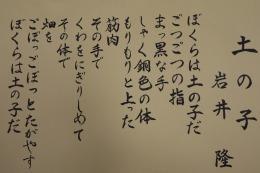 土の子
岩井隆
ぼくらは土の子だ
ごつごつの指
まっ黒な手
しゃく銅色の体
もりもりと上った
筋肉
その手で
くわをにぎりしめて
その体で
畑を
ごぼっごぼっとたがやす
ぼくらは土の子だ